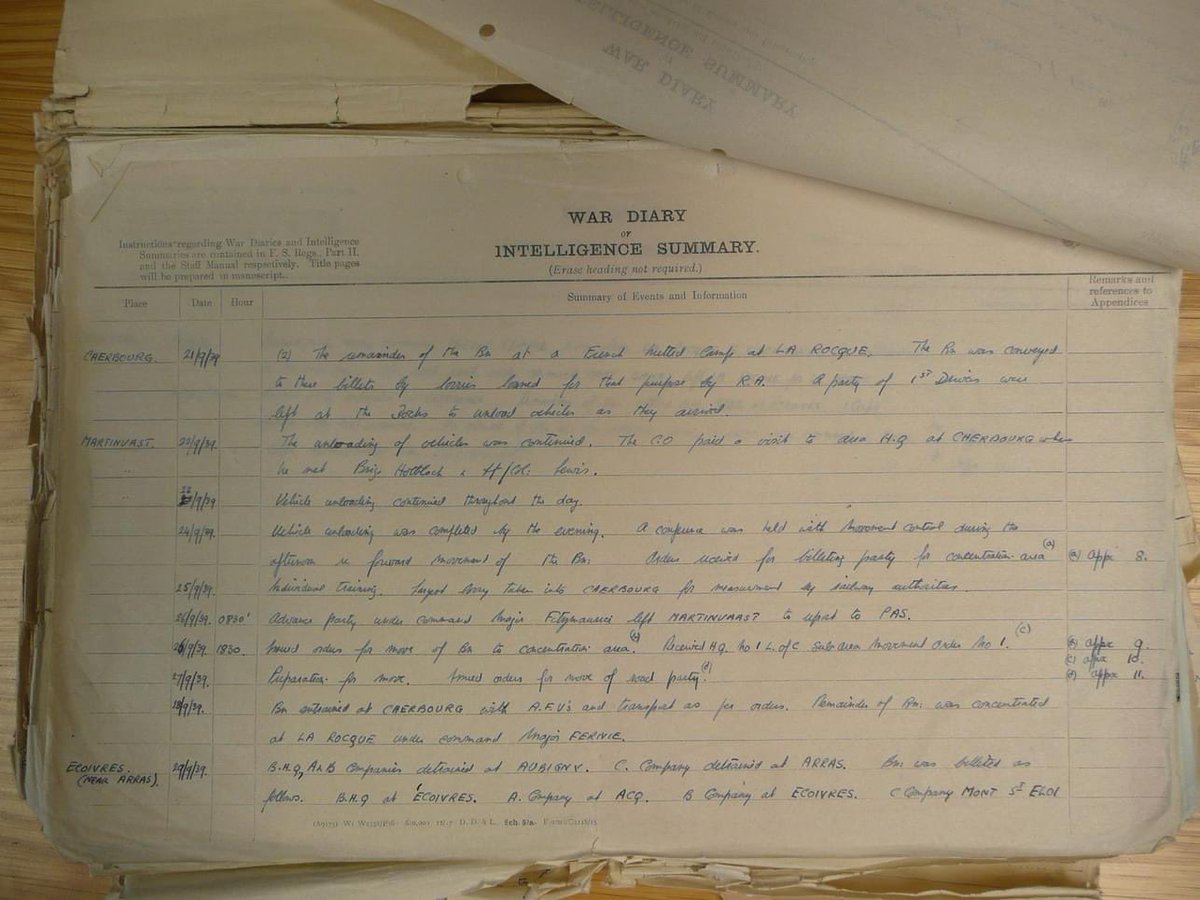 WAR DIARY
or
INTELLIGENCE SUMMARY.
(Erase heading not required.)
Instructions regarding War Diaries and Intelligence
Summaries are contained in F. S. Regs., Part II.
and the Staff Manual respectively. Title pages
will be prepared in manuscript.
Place Date Hour Summary of Events and Information Remarks and references to Appendices
CHERBOURG. 21/9/39 (2) The remainder of the Bn at a French hutted Camp at LA ROCQUE. The Bn was conveyed
to these billets by lorries loaned for that purpose by R.A. A party of 1ST Drivers were
left at the Docks to unload vehicles as they arrived.
MARTINVAST. 22/9/39. The unloading of vehicles was continued. The C.O paid a visit to area H.Q at CHERBOURG where
he met Brig. Hotblack & Lt/Col: Lewis.
/9/39 Vehicle unloading continued throughout the day.
24/9/39. Vehicle unloading was completed by the evening. A conference was held with movement control during the
afternoon re forward movement of the Bn: Orders received for billeting party for concentration area (a) (a) appx 8.
25/9/39. Individual training. Largest lorry taken into CHERBOURG for measurement by railway authorities.
26/9/39. 0830' Advance party under command Major Fitzmaurice left MARTINVAAST to report to PAS.
26/9/39 1830. Issued orders for move of Bn to concentration area. (b) Received H.Q. No 1 L. of C Sub area Movement Order No 1. (c) (b) appx 9.
(c) appx 10.
27/9/39. Preparation for move. Issued orders for move of road party. (d) (d) appx 11.
28/9/39. Bn entrained at CHERBOURG with A.F.V's and transport as per orders. Remainder of Bn: was concentrated
at LA ROCQUE under command Major FERNIE.
ECOIVRES. (NEAR ARRAS). 29/9/39. B.H.Q, A & B Companies detrained at AUBIGNY. C. Company detrained at ARRAS. Bn: was billeted as
follows. B.H.Q at ECOIVRES. A. Company at ACQ. B Company at ECOIVRES. C Company MONT ST ELOI